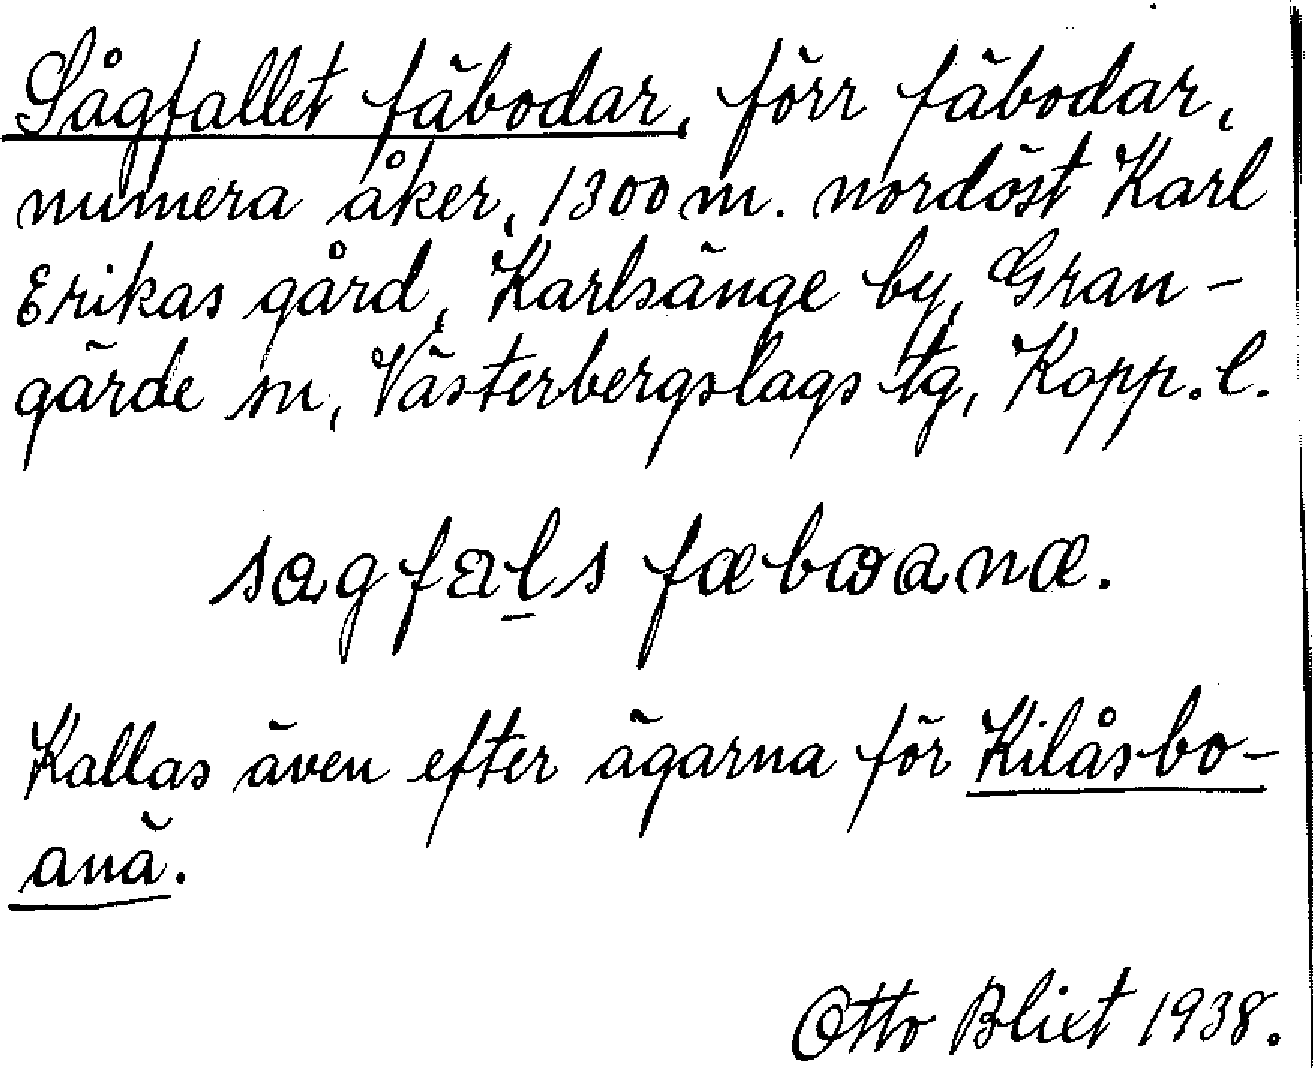 Sågfallet fäbodar, förr fäbodar,
numera åker, 1300 m. nordöst Karl
Erikas gård, Karlsänge by, Gran-
gärde sn, Västerbergslags tg, Kopp. l.
sagfals fæbɷanæ.
Kallas även efter ägarna för Kilåsbo-
anä.
Otto Blixt 1938.